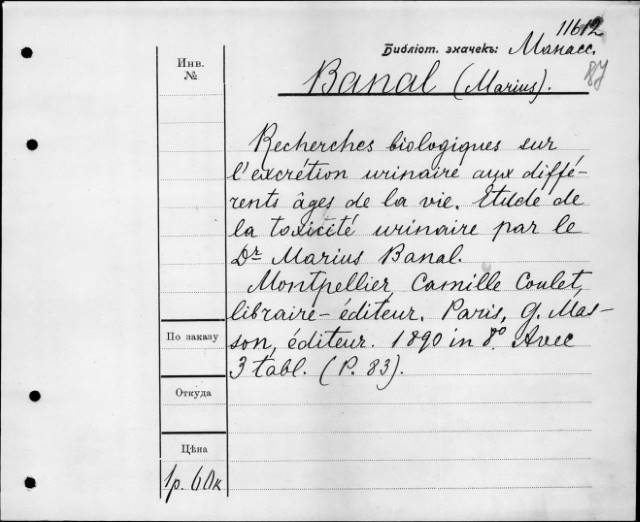 11612
Библіот. значекъ: Манасс.
87
Инв.
№
Banal (Marius).
Recherches biologiques sur
l'excrétion urinaire aux diffé-
rents âges de la vie. Etude de
la toxicité urinaire par le
Dr Marius Banal.
Montpellier, Camille Coulet,
libraire-éditeur. Paris, G. Mas-
son, éditeur. 1890 in 8º. Avec
3 tabl. (P. 83).
По заказу
Откуда
Цѣна
1р. 60к